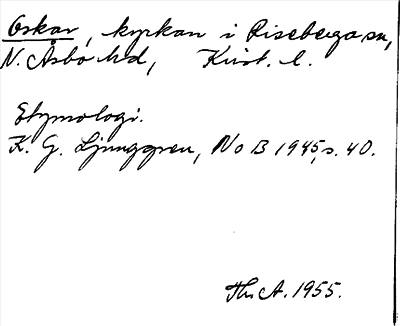 Oskar, kyrkan i Riseberga sn,
N. Åsbo hd, Krist. l.
Etymologi.
K. G. Ljunggren, NoB 1945, s. 40.
Th. A. 1955.